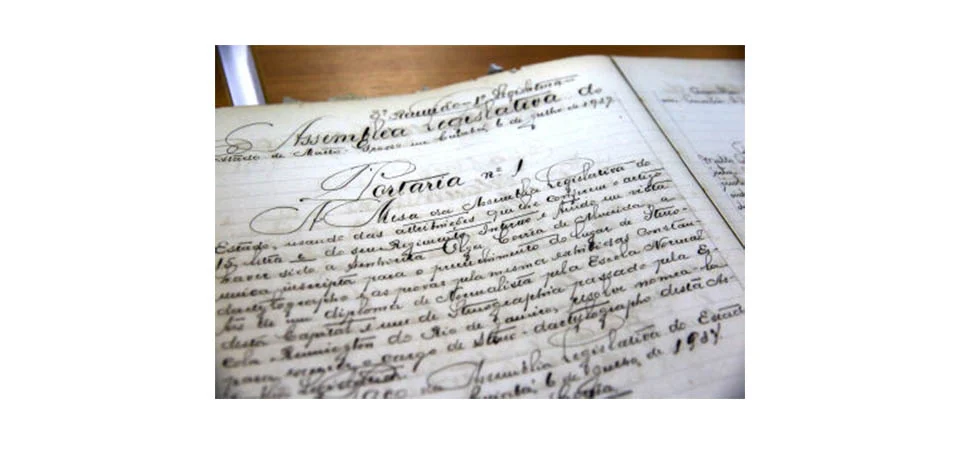 3ª Reunião - 1ª Legislatura
Assemblea Legislativa do
Estado de Matto-Grosso em Cuiabá, 6 de julho de 1937.
Portaria nº 1
A Mesa da Assemblea Legislativa do
Estado, usando das attribuições que lhe confere o artigo
15, letra e do seu Regimento Interno e tendo em vista
haver sido a senhorita Corrêa de Almeida a
unica inscripta para o preenchimento do lugar de Steno-
dactylographo e as provas pela mesma exhibidas constan-
tes de um diploma de Normalista pela Escola Normal
desta Capital e um de Stenographia passado pela Es-
cola Remington do Rio de Janeiro, resolve nomea-la
para exercer o cargo de Steno-dactylographo desta As-
semblea Legislativa.
Paço da Assemblea Legislativa do Estado
Cuiabá, 6 de de 1937.